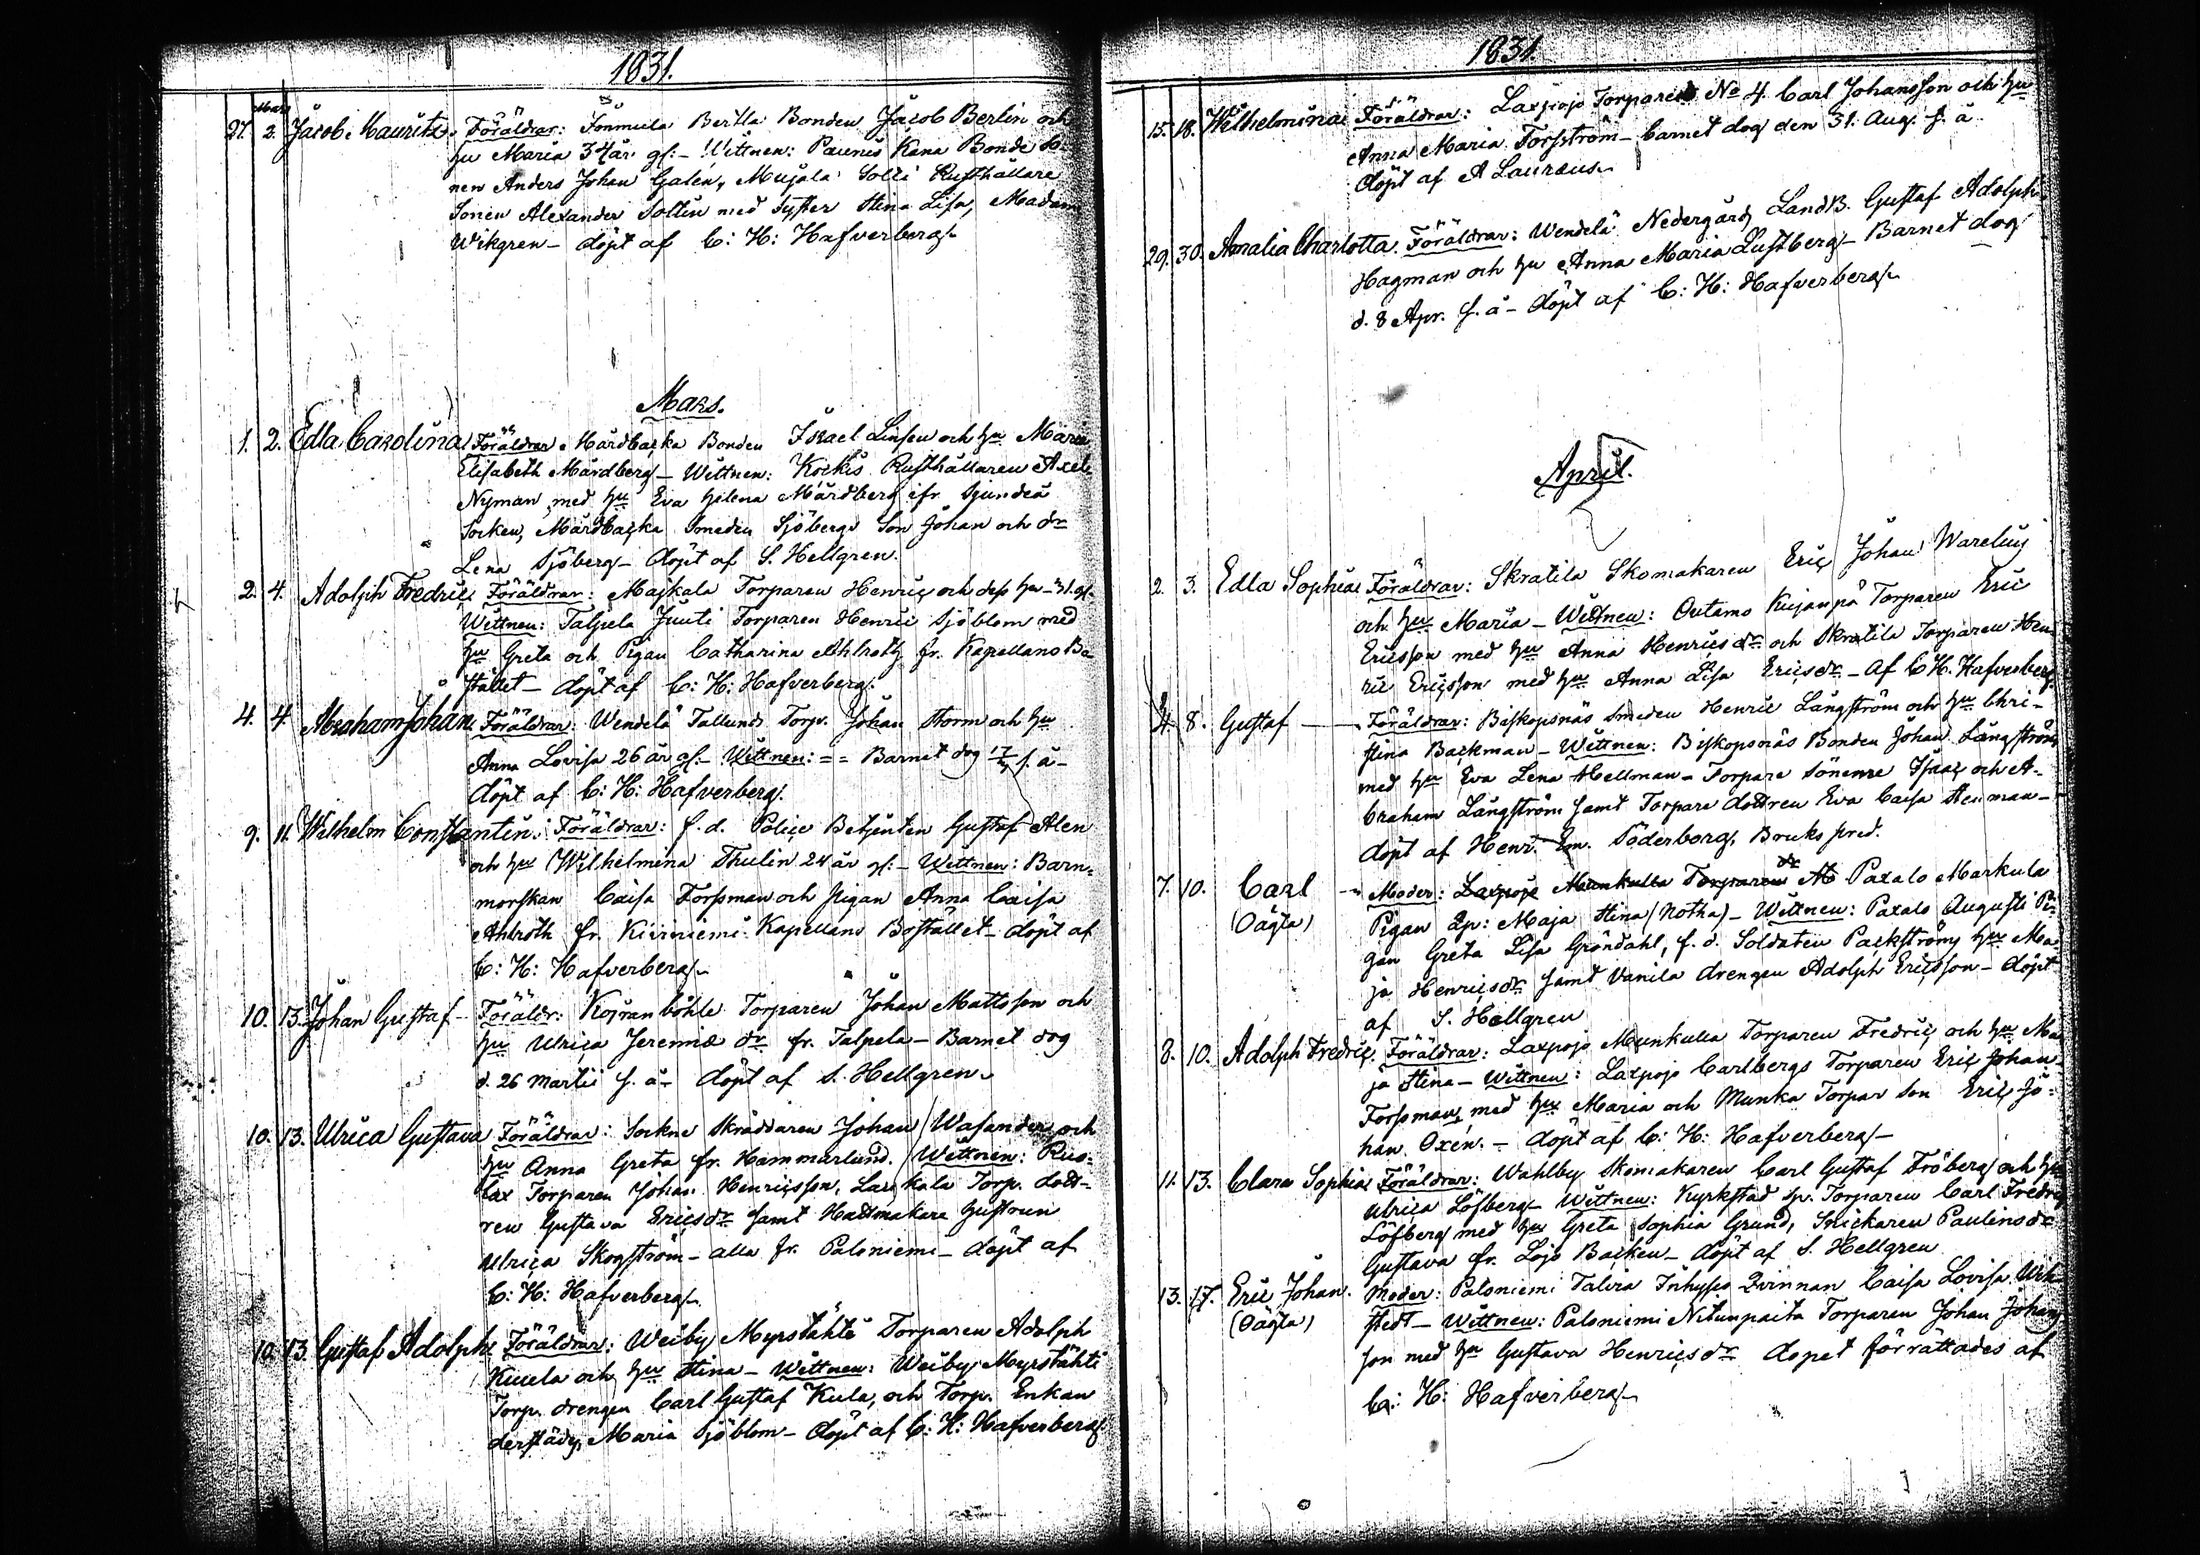 1831.
Mars
27. 2. Jacob Mauritz. Föräldrar: Bertla Bonden Jacob Berlin och
hu Maria 34 år gl: – Wittnen: Paunis Kana Bonde So-
nen Anders Johan Galen, Mujala Solli Rusthållare
Sonen Alexander Sollin med Syster Stina Lisa, Madam
Wikgren – döpt af C: H: Hafverberg.
Mars.
1. 2. Edla Carolina Föräldrar Mårdbacka Bonden Israel Linsen och hu Maria
Elisabeth Mårdberg – Wittnen: Kockis Rusthållaren Axel
Nyman med hu Eva Helena Mårdberg ifr. Sjundeå
Socken, Mårdbacka Smeden Sjöbergs Son Johan och dr
Lena Sjöberg – döpt af S. Hellgren.
2. 4. Adolph Fredric Föräldrar: Maskala Torparen Henric och dess hu – 31. gl.
Wittnen: Talpela Juuti Torparen Henric Sjöblom med
hu Greta och Pigan Catharina Ahlroth fr. Kapellans Bo-
stället – döpt af C: H: Hafverberg.
4. 4 Abraham Johan Föräldrar: Wendelä Tallund Torp. Johan Storm och hu
Anna Lovisa 26 år gl: – Wittnen: = = Barnet dog s. å –
döpt af C: H: Hafverberg.
9. 11. Wilhelm Constantin. Föräldrar: f. d. Police Betjenten Gustaf Alen
och hu Wilhelmina Thulin 24 år gl: – Wittnen: Barn-
morskan Caisa Forssman och pigan Anna Caisa
Ahlroth fr. Kirniemi Kapellans Bostället – döpt af
C: H: Hafverberg.
10. 13. Johan Gustaf – Föräldr: Kosranböhle Torparen Johan Mattsson och
hu Ulrica Jeremiæ dr fr. Talpela – Barnet dog
d. 26 Martii s. å – döpt af S. Hellgren.
10. 13. Ulrica Gustava Föräldrar: Sockne Skräddaren Johan Wasander och
hu Anna Greta fr. Hammarlund. Wittnen: Rus-
lax Torparen Johan Henricsson, Laukala Torp. dott-
ren Gustava Ericsdr samt Hattmakare hustrun
Ulrica Skogström – alla fr. Paloniemi – döpt af
C: H: Hafverberg.
10. 13. Gustaf Adolph Föräldrar: Weiby Meyrstähti Torparen Adolph
Kuula och hu Stina – Wittnen: Weiby Meyrstähti
Torp. drengen Carl Gustaf Kula, och Torp. Enkan
derstäds, Maria Sjöblom – döpt af C: H: Hafverberg
1831.
15. 18. Wilhelmina Föräldrar: Laxpojo Torpare No 4. Carl Johansson och hu
Anna Maria Forsström – barnet dog den 31. Aug. s. å.
döpt af A Lauræus.
29. 30. Amalia Charlotta. Föräldrar: Wendelä Nedergård LandB. Gustaf Adolph
Hagman och hu Anna Maria Lustberg – Barnet dog
d. 8 Apr. s. å – döpt af C: H: Hafverberg.
April.
2. 3. Edla Sophia Föräldrar: Skratila Skomakaren Eric Johan Warelius
och hu Maria – Wittnen: Outamo Kujanpä Torparen Eric
Ericsson med hu Anna Henricsdr och Skratila Torparen Hen-
ric Ericsson med hu Anna Lisa Ericsdr – af C H. Hafverberg.
4. 8. Gustaf – Föräldrar: Biskopsnäs Smeden Henric Långström och hu Chri-
stina Backman – Wittnen: Biskopsnäs Bonden Johan Långström
med hu Eva Lena Hellman – Torpare sönerne Isaac och A-
braham Långström samt Torpare dottren Eva Caisa Stenman –
döpt af Henr. Em. Söderborg, Bruks pred.
7. 10. Carl – Moder: Laxpojo Munkulla Torparen dr Paxalo Markula
(Oägta) Pigan Maja Stina (Notha) – Wittnen: Paxalo Augusti Pi-
gan Greta Lisa Gröndahl, f. d. Soldaten Packströms hu Ma-
ja Henricsdr samt Vanila drengen Adolph Ericsson – döpt
af S. Hellgren
8. 10. Adolph Fredric. Föräldrar: Laxpojo Munkulla Torparen Fredric och hu Ma-
ja Stina – Wittnen: Laxpojo Carlbergs Torparen Eric Johan
Forssman, med hu Maria och Munka Torpar Son Eric Jo-
han Oxén. – döpt af C: H: Hafverberg –
11. 13. Clara Sophia Föräldrar: Wahlby Skomakaren Carl Gustaf Fröberg och hu
Ulrica Löfberg – Wittnen: Kyrkstad Torparen Carl Fredric
Löfberg med hu Greta Sophia Grund, Snickaren Paulins dr
Gustava fr. Lojo Backen – döpt af S. Hellgren
13. 17. Eric Johan. Moder: Paloniemi Talvia Inhyses Qvinnan Caisa Lovisa Wek-
(Oägta) stedt – Wittnen: Paloniemi Nitunpaita Torparen Johan Johans-
son med hu Gustava Henricsdr dopet förrättades af
C: H: Hafverberg.